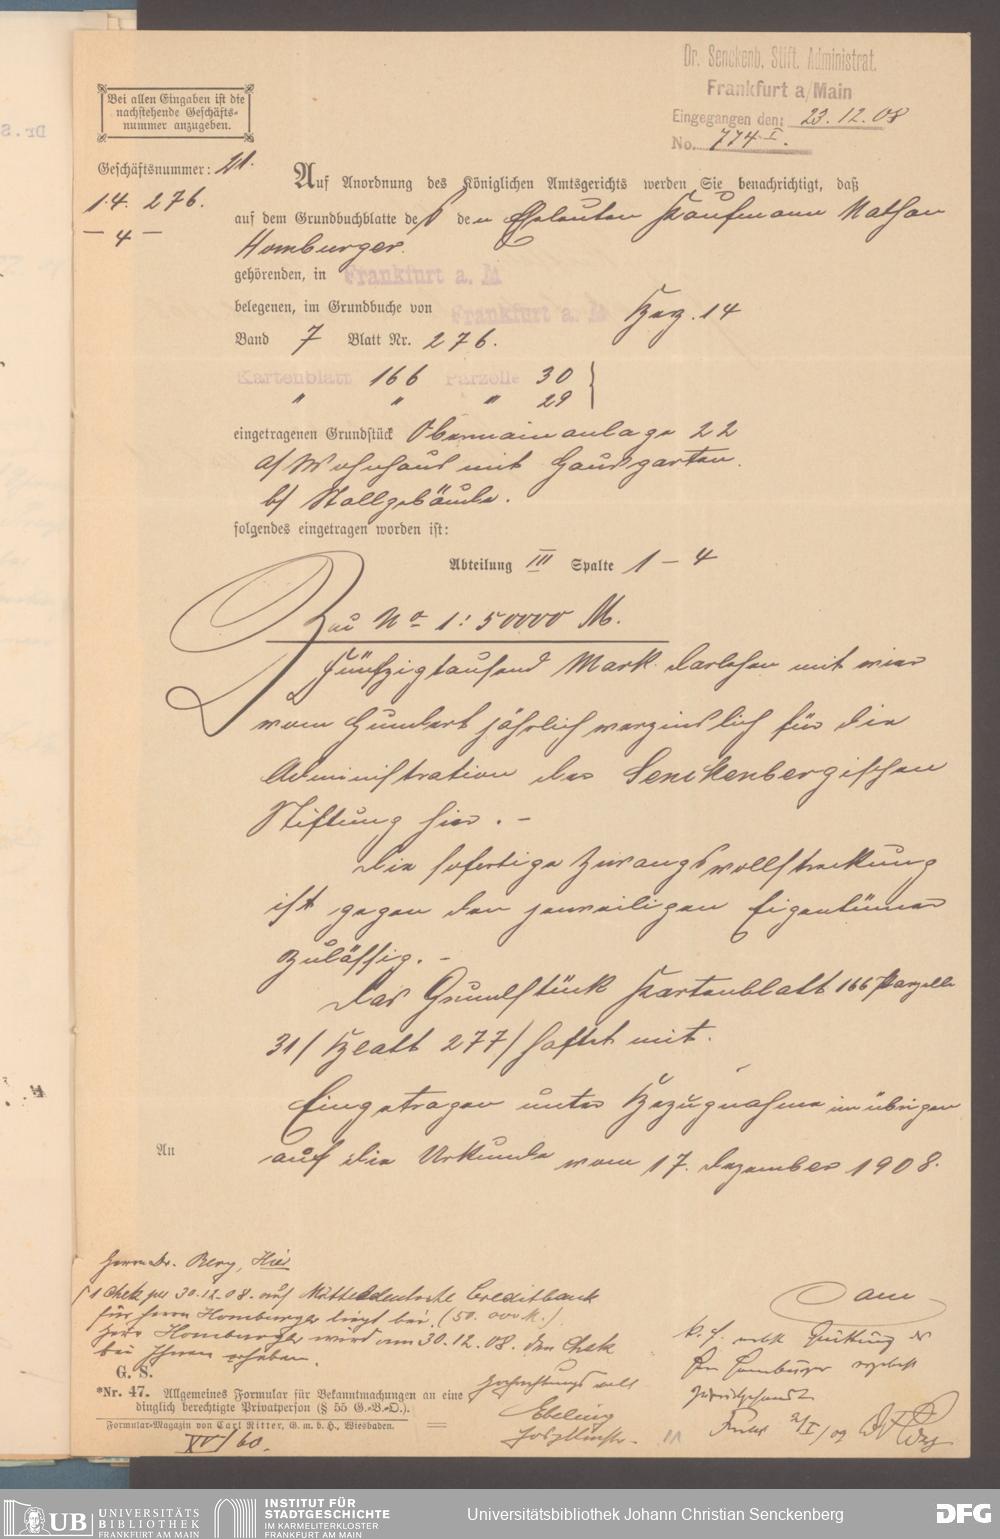 Dr. Senckenb. Stift. Administrat.
Frankfurt a/Main
Eingegangen den: 23. 12. 08
No. 774 I.
Bei allen Eingaben ist die
nachstehende Geschäfts-
nummer anzugeben.
Geschäftsnummer: 21.
14. 276.
— 4 —
Auf Anordnung des Königlichen Amtsgerichts werden Sie benachrichtigt, daß
auf dem Grundbuchblatte de den Eheleuten Kaufmann Nathan
Homburger.
gehörenden, in Frankfurt a. M
belegenen, im Grundbuche von Frankfurt a. M Bez. 14
Band 7 Blatt Nr. 276.
Kartenblatt 166 Parzelle 30
" " " 29
eingetragenen Grundstück Obermainanlage 22
a/ Wohnhaus mit Hausgarten.
b/ Stallgebäude.
folgendes eingetragen worden ist:
Abteilung III Spalte 1 – 4
Zu No 1: 50000 M.
Fünfzigtausend Mark Darlehen mit vier
vom Hundert jährlich verzinslich für die
Administration der Senckenbergischen
Stiftung hier. –
Die sofortige Zwangsvollstreckung
ist gegen den jeweiligen Eigentümer
zulässig. –
Das Grundstück Kartenblatt 166 Parzelle
31/ Blatt 277/ haftet mit.
Eingetragen unter Bezugnahme im übrigen
auf die Urkunde vom 17. Dezember 1908.
An
Herrn Dr. Berg, Hier
1 Chek per 30.12.08. auf Mitteldeutsche Creditbank
für Herrn Homburger liegt bei. (50.000 M.)
Herr Homburger wird am 30.12.08. den Chek
bei Ihnen erheben.
G. S.
Hochachtungsvoll
Ebeling
*Nr. 47. Allgemeines Formular für Bekanntmachungen an eine
dinglich berechtigte Privatperson (§ 55 G.-B.-O.).
Formular-Magazin von Carl Ritter, G. m. b. H., Wiesbaden.
XV/60.
nebst Quittung des
Hrn Homburger ergebenst
zurückgesandt
2/I/09
UB UNIVERSITÄTS
BIBLIOTHEK
FRANKFURT AM MAIN
INSTITUT FÜR
STADTGESCHICHTE
IM KARMELITERKLOSTER
FRANKFURT AM MAIN
Universitätsbibliothek Johann Christian Senckenberg
DFG